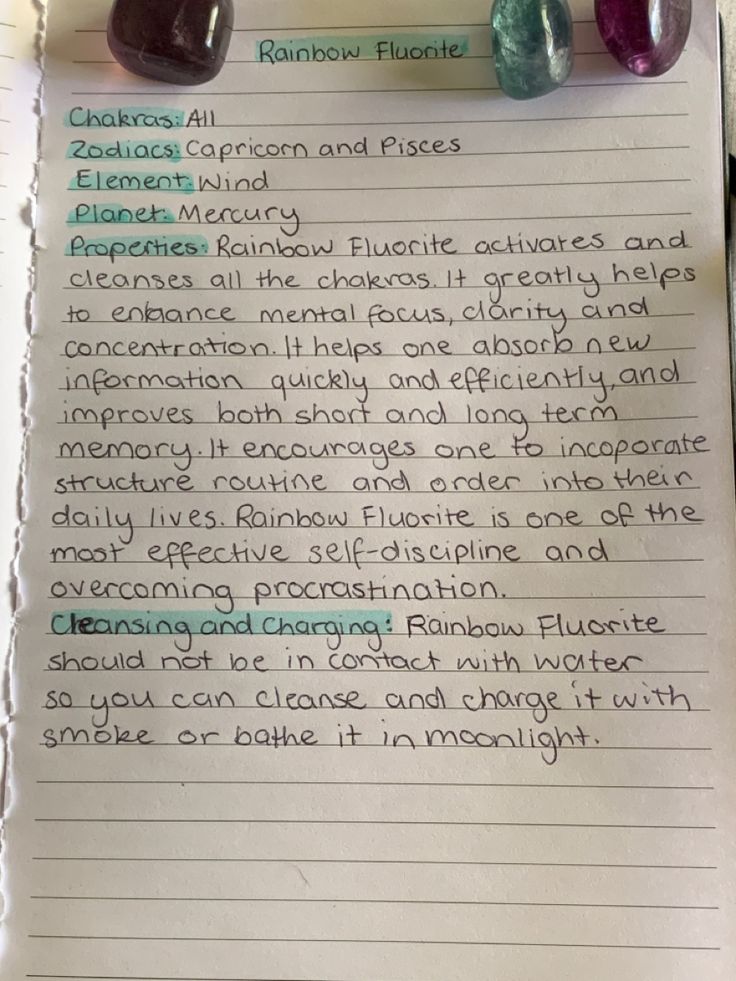 Rainbow Fluorite
Chakras: All
Zodiacs: Capricorn and Pisces
Element: Wind
Planet: Mercury
Properties: Rainbow Fluorite activates and
cleanses all the chakras. It greatly helps
to enhance mental focus, clarity and
concentration. It helps one absorb new
information quickly and efficiently, and
improves both short and long term
memory. It encourages one to incoporate
structure routine and order into their
daily lives. Rainbow Fluorite is one of the
most effective self-discipline and
overcoming procrastination.
Cleansing and Charging: Rainbow Fluorite
should not be in contact with water
so you can cleanse and charge it with
smoke or bathe it in moonlight.